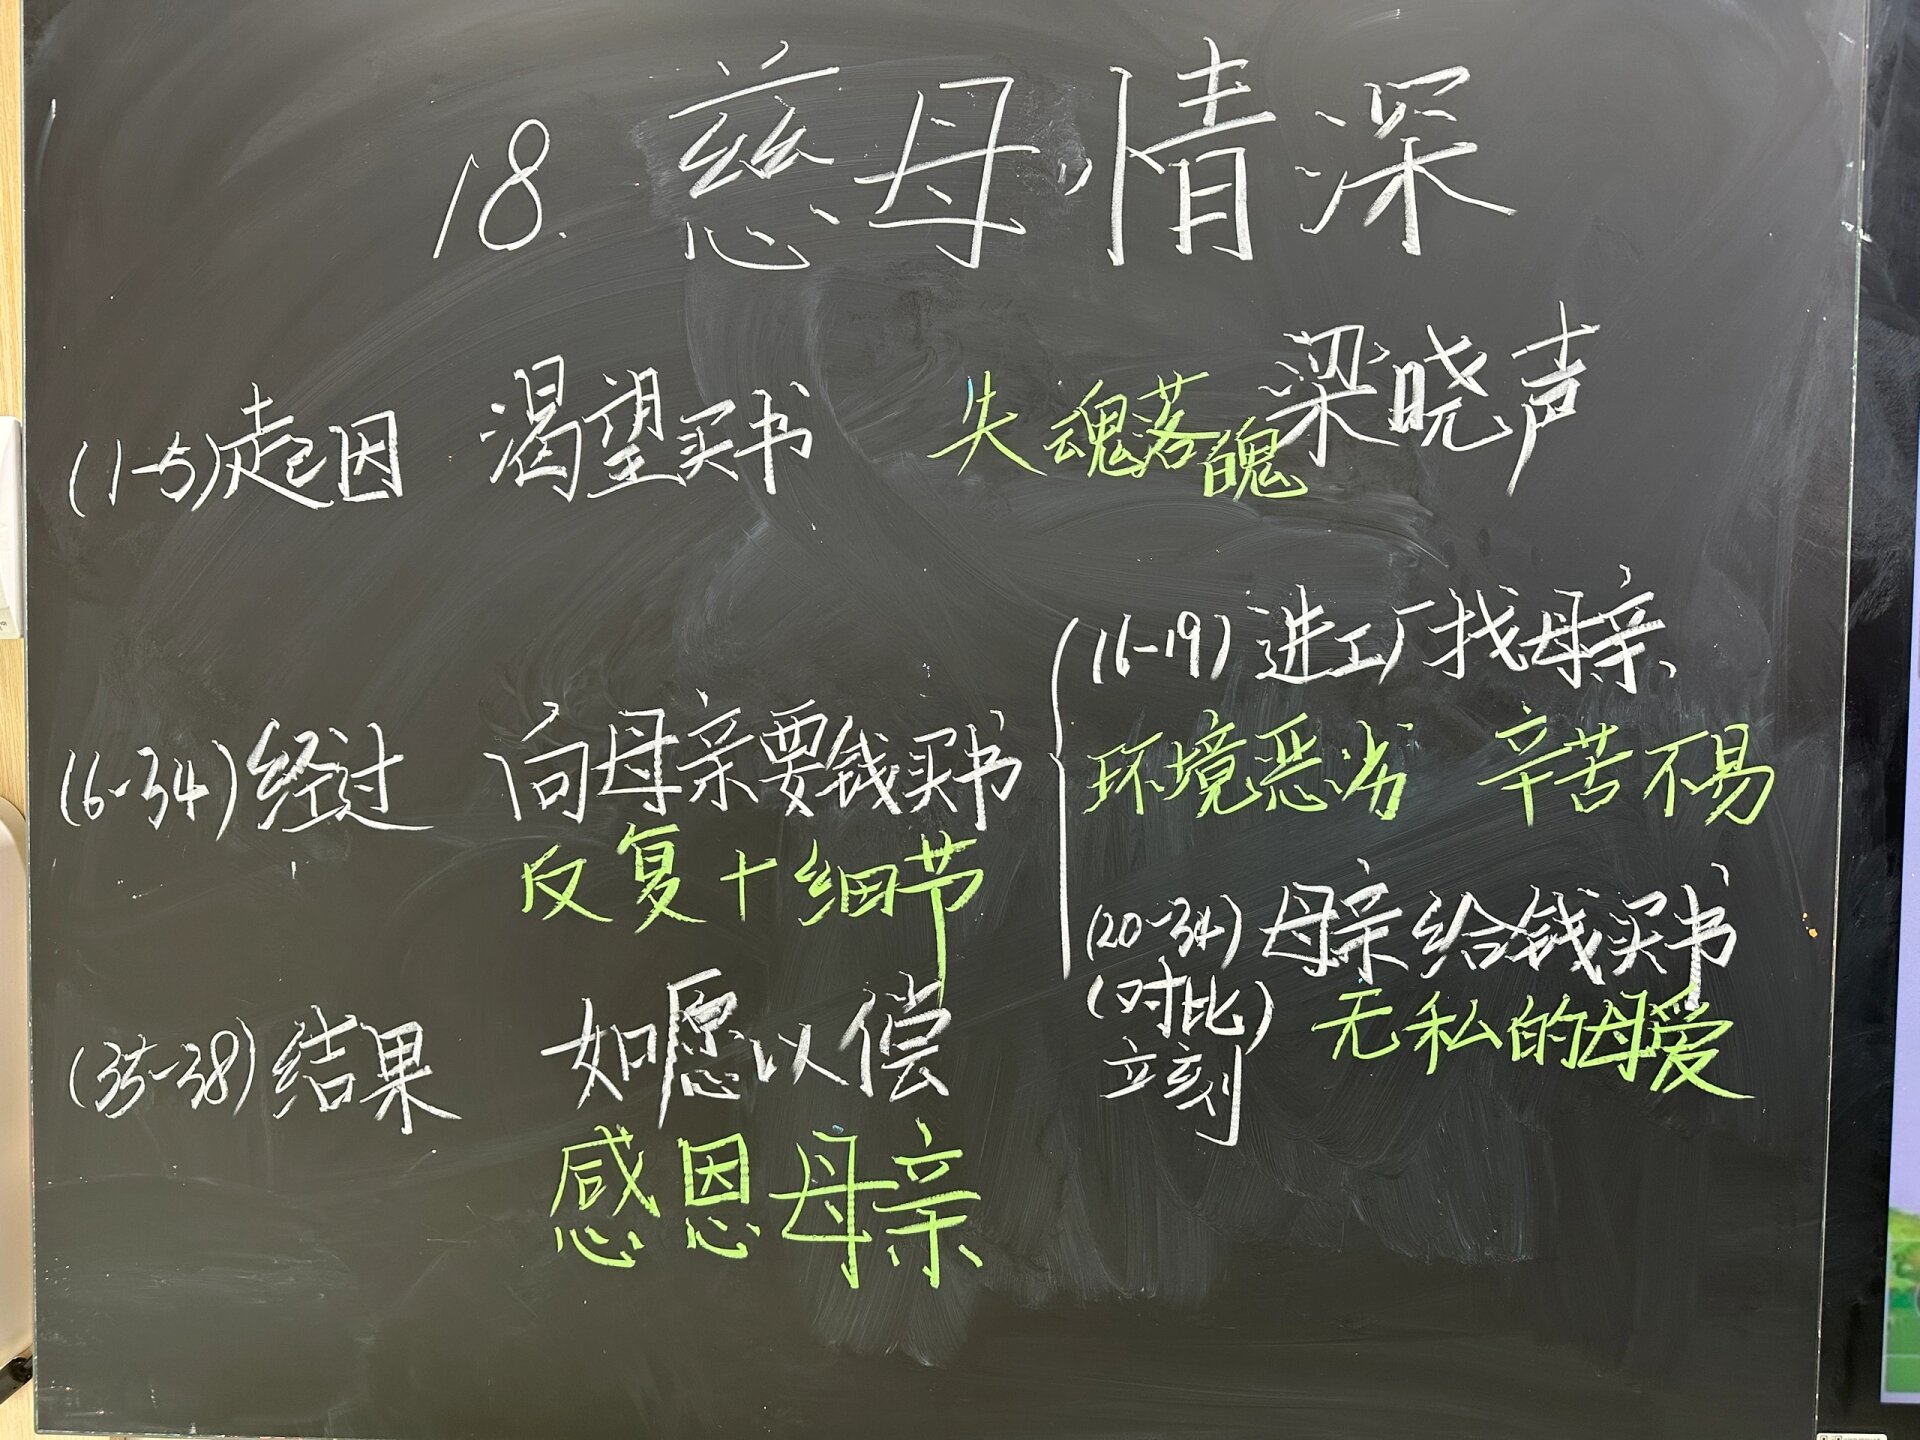 18. 慈母情深
梁晓声
(1-5)起因 渴望买书 失魂落魄
(6-34)经过 向母亲要钱买书
反复+细节
(16-19)进工厂找母亲
环境恶劣 辛苦不易
(20-34)母亲给钱买书
(对比) 无私的母爱
立刻
(35-38)结果 如愿以偿
感恩母亲